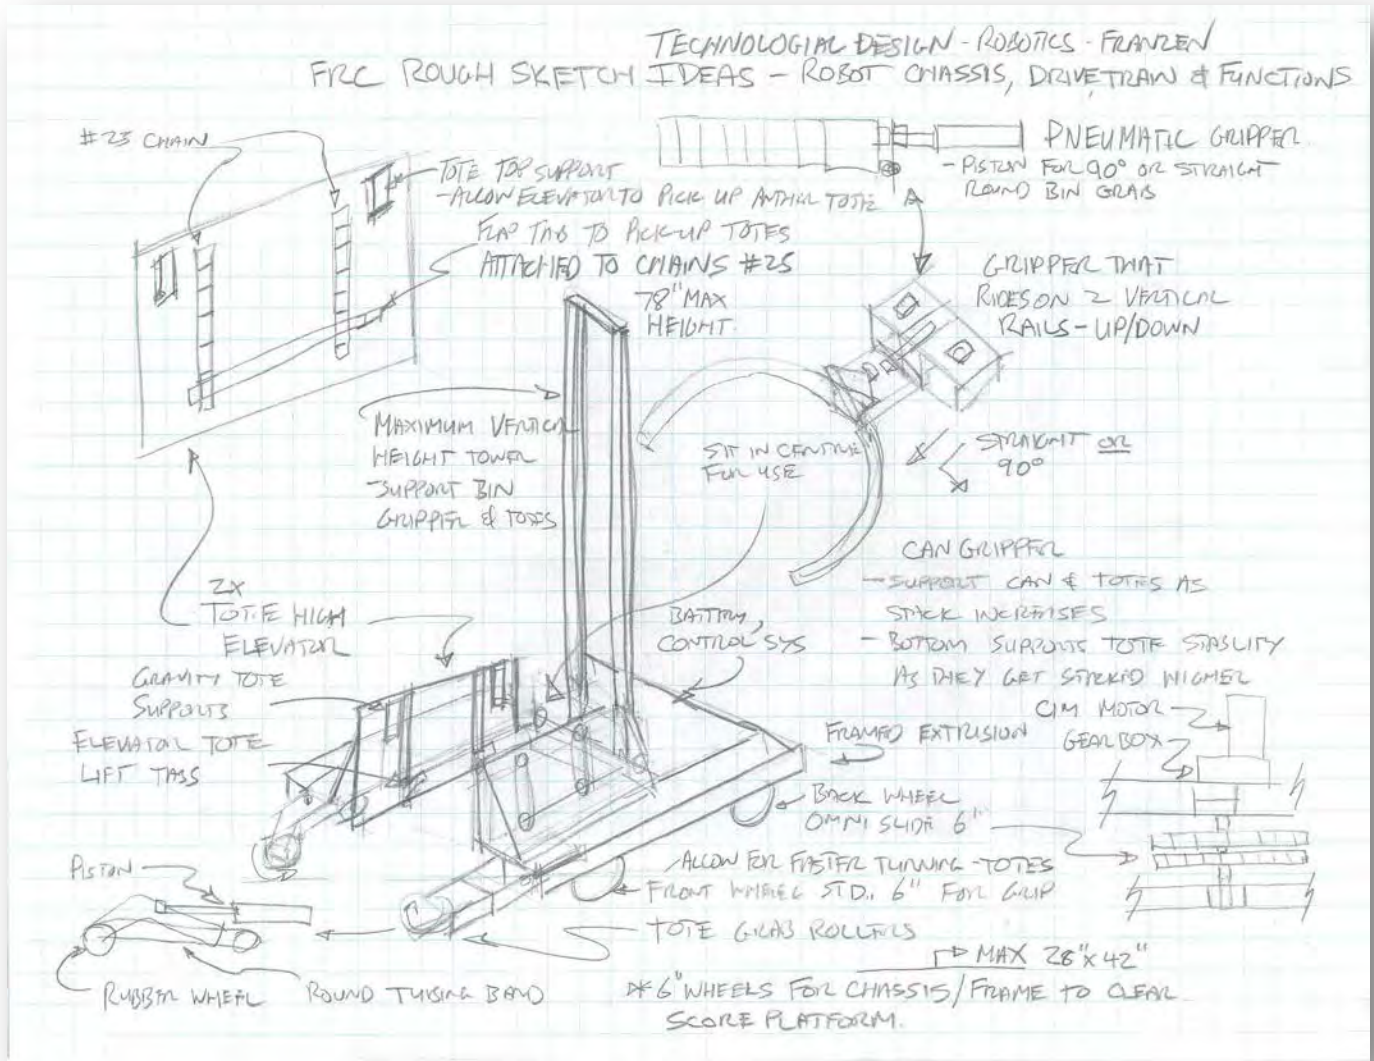 TECHNOLOGIAL DESIGN - ROBOTICS - FRANZEN
FRC ROUGH SKETCH IDEAS - ROBOT CHASSIS, DRIVETRAIN & FUNCTIONS
#25 CHAIN
TOTE TOP SUPPORT
- ALLOW ELEVATOR TO PICK UP ANTHER TOTE
FLAP TAB TO PICK-UP TOTES
ATTACHED TO CHAINS #25
78" MAX
HEIGHT.
PNEUMATIC GRIPPER
- PISTON FOR 90° OR STRAIGHT
ROUND BIN GRAB
GRIPPER THAT
RIDES ON 2 VERTICAL
RAILS - UP/DOWN
MAXIMUM VERTICAL
HEIGHT TOWER
- SUPPORT BIN
GRIPPER & TOTES
SIT IN CENTRE
FOR USE
STRAIGHT OR
90°
CAN GRIPPER
- SUPPORT CAN & TOTES AS
STACK INCREASES
- BOTTOM SUPPORTS TOTE STABLITY
AS THEY GET STACKED HIGHER
2X
TOTE HIGH
ELEVATOR
GRAVITY TOTE
SUPPORTS
ELEVATOR TOTE
LIFT TABS
BATTERY,
CONTROL SYS
CIM MOTOR
GEARBOX
FRAMED EXTRUSION
BACK WHEEL
OMNI SLIDE 6"
ALLOW FOR FASTER TURNING - TOTES
FRONT WHEEL STD. 6" FOR GRIP
TOTE GRAB ROLLERS
PISTON
RUBBER WHEEL
ROUND TUBING BAND
MAX 28" X 42"
* 6" WHEELS FOR CHASSIS/FRAME TO CLEAR
SCORE PLATFORM.